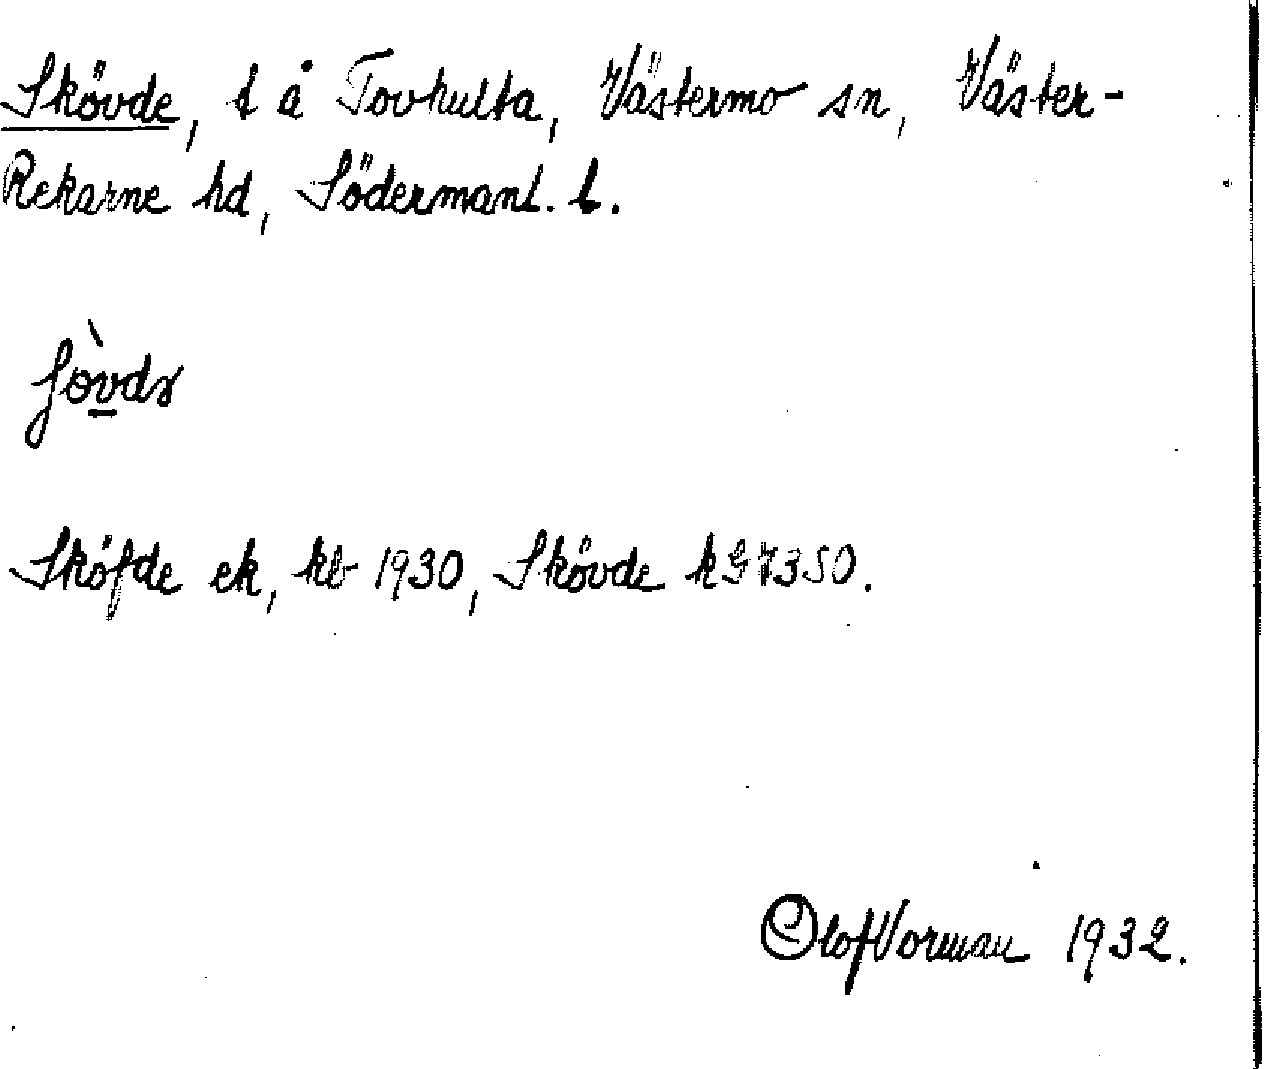 Skövde, t å Tovhulta, Västermo sn, Väster-
Rekarne hd, Södermanl. l.
Sköfde ek, kb 1930, Skövde kG 7350.
Olof Vorman 1932.